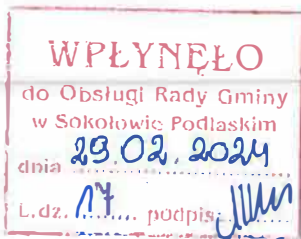 WPŁYNĘŁO
do Obsługi Rady Gminy
w Sokołowie Podlaskim
dnia 29.02.2024
L.dz. 17 podpis: